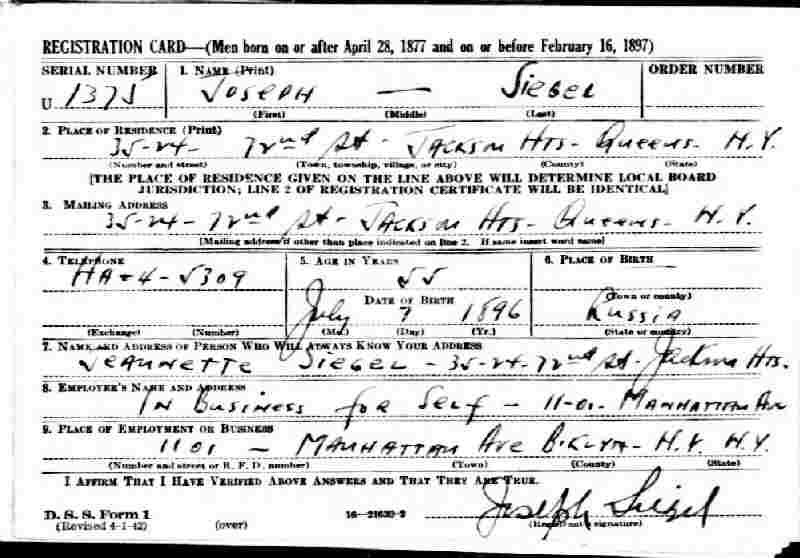 REGISTRATION CARD—(Men born on or after April 28, 1877 and on or before February 16, 1897)
SERIAL NUMBER 1. NAME (Print) ORDER NUMBER
U 1375 JOSEPH — SIEGEL
(First) (Middle) (Last)
2. PLACE OF RESIDENCE (Print)
35-24- 72nd St- JACKSON HTS- QUEENS- N.Y.
(Number and street) (Town, township, village, or city) (County) (State)
[THE PLACE OF RESIDENCE GIVEN ON THE LINE ABOVE WILL DETERMINE LOCAL BOARD
JURISDICTION; LINE 2 OF REGISTRATION CERTIFICATE WILL BE IDENTICAL]
3. MAILING ADDRESS
35-24-72nd St- JACKSON HTS- QUEENS- N.Y.
[Mailing address if other than place indicated on line 2. If same insert word same]
4. TELEPHONE 5. AGE IN YEARS 6. PLACE OF BIRTH
HA-4-5309 55
DATE OF BIRTH (Town or county)
July 7 1896 RUSSIA
(Exchange) (Number) (Mo.) (Day) (Yr.) (State or country)
7. NAME AND ADDRESS OF PERSON WHO WILL ALWAYS KNOW YOUR ADDRESS
JEANNETTE SIEGEL - 35-24-72nd St- Jackson Hts.
8. EMPLOYER'S NAME AND ADDRESS
IN BUSINESS for Self - 11-01- MANHATTAN AVE
9. PLACE OF EMPLOYMENT OR BUSINESS
1101 - MANHATTAN AVE B'KLYN- N.Y. N.Y.
(Number and street or R. F. D. number) (Town) (County) (State)
I AFFIRM THAT I HAVE VERIFIED ABOVE ANSWERS AND THAT THEY ARE TRUE.
D. S. S. Form 1
(Revised 4-1-42) (over) 16—21630-2 Joseph Siegel
(Registrant's signature)